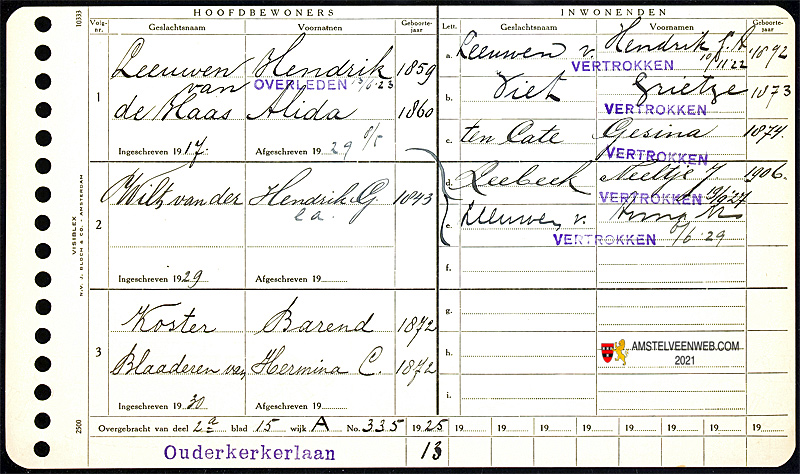 HOOFDBEWONERS
Volg-nr. Geslachtsnaam Voornamen Geboorte-jaar
1 Leeuwen van Hendrik 1859
OVERLEDEN
de Haas Alida 1860
Ingeschreven 1917. Afgeschreven 1929
2 Wilt van der Hendrik G. 1843
e.a.
Ingeschreven 1929 Afgeschreven 19
3 Koster Barend 1872
Blaaderen van Hermina C. 1872
Ingeschreven 1930 Afgeschreven 19
INWONENDEN
Lett. Geslachtsnaam Voornamen Geboorte-jaar
a. Leeuwen v. Hendrik J. A. 1892
VERTROKKEN 10/11 '22
b. Viet Grietze 1873
VERTROKKEN
c. ten Cate Gesina 1874
VERTROKKEN
d. Leebeek Neeltje J. 1906.
VERTROKKEN
e. Leeuwen, v.
VERTROKKEN /6 '29
f.
g.
h.
i.
AMSTELVEENWEB.COM
2021
Overgebracht van deel 2a blad 15 wijk A No. 335 1925 19 19 19 19 19 19 19 19
Ouderkerkerlaan 13
10333
VISIBLEX
N.V. J. BLOCH & CO. - AMSTERDAM
2500